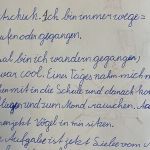 tscheck. Ich bin immer wege=
oder gegangen.
al bin ich wandern gegangen,
war cool. Eines Tages nahm mich m
mit in die Schule und danach ha
fliegen und zum Mond rauschen.
Vögel in mir sitzen.
Aufgabe ist jetzt Seele vom